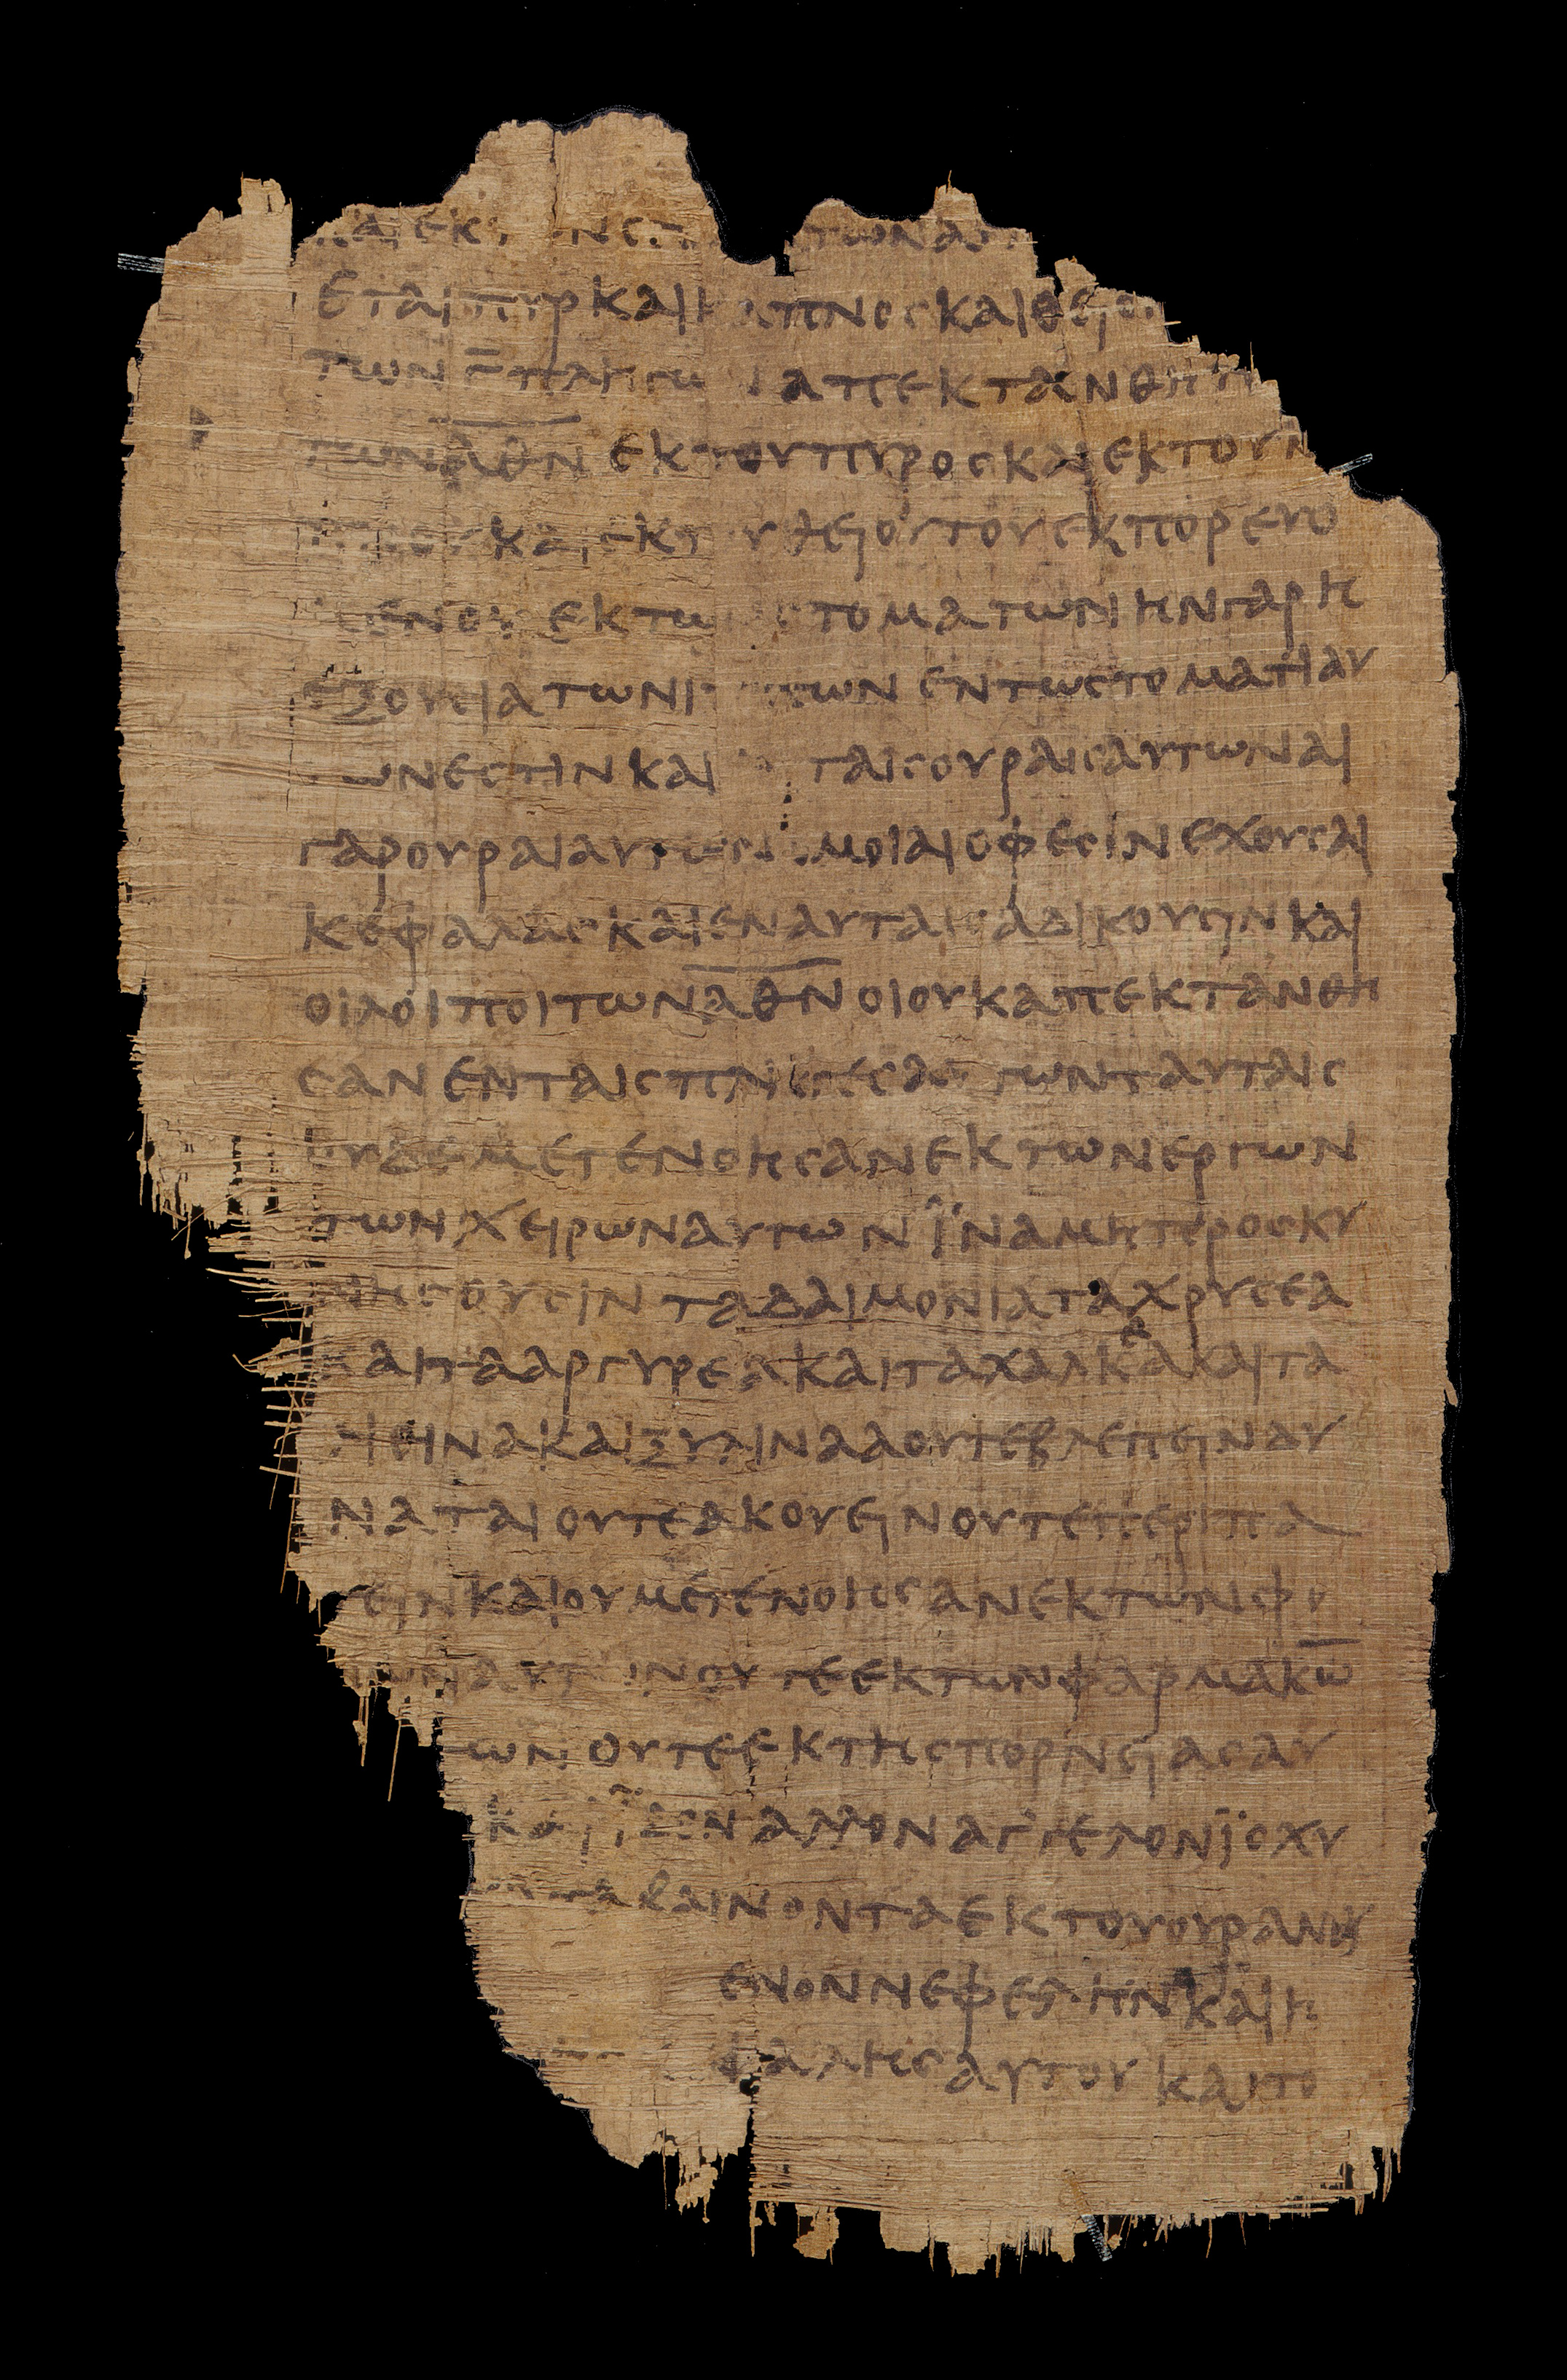 ΤΩΝΑΥ
ΕΤΑΙΠΥΡΚΑΙΚΑΠΝΟϹΚΑΙΘΕΙΟ
ΤΩΝΓ̅ΠΛΗΓΩΝΑΠΕΚΤΑΝΘΗ
ΤΩΝΑ̅Θ̅Ν̅ΕΚΤΟΥΠΥΡΟϹΚΑΙΕΚΤΟΥΚ
ΠΝΟΥΚΑΙΕΚΤΟΥΘΕΙΟΥΤΟΥΕΚΠΟΡΕΥΟ
ΜΕΝΟΥΕΚΤΩΝϹΤΟΜΑΤΩΝΗΝΓΑΡΗ
ΕΞΟΥϹΙΑΤΩΝΙΠΠΩΝΕΝΤΩϹΤΟΜΑΤΙΑΥ
ΤΩΝΕϹΤΙΝΚΑΙΕΝΤΑΙϹΟΥΡΑΙϹΑΥΤΩΝΑΙ
ΓΑΡΟΥΡΑΙΑΥΤΩΝΟΜΟΙΑΙΟΦΕϹΙΝΕΧΟΥϹΑΙ
ΚΕΦΑΛΑϹΚΑΙΕΝΑΥΤΑΙϹΑΔΙΚΟΥϹΙΝΚΑΙ
ΟΙΛΟΙΠΟΙΤΩΝΑ̅Θ̅Ν̅ΟΙΟΥΚΑΠΕΚΤΑΝΘΗ
ϹΑΝΕΝΤΑΙϹΠΛΗΓΕϹΑΥΤΩΝΤΑΥΤΑΙϹ
ΟΥΔΕΜΕΤΕΝΟΗϹΑΝΕΚΤΩΝΕΡΓΩΝ
ΤΩΝΧΕΙΡΩΝΑΥΤΩΝΪΝΑΜΗΠΡΟϹΚΥ
ΝΗϹΟΥϹΙΝΤΑΔΑΙΜΟΝΙΑΤΑΧΡΥϹΕΑ
ΚΑΙΤΑΑΡΓΥΡΕΑΚΑΙΤΑΧΑΛΚΕΑΚΑΙΤΑ
ΛΙΘΙΝΑΚΑΙΞΥΛΙΝΑΑΟΥΤΕΒΛΕΠΕΙΝΔΥ
ΝΑΤΑΙΟΥΤΕΑΚΟΥΕΙΝΟΥΤΕΠΕΡΙΠΑ
ΤΕΙΝΚΑΙΟΥΜΕΤΕΝΟΗϹΑΝΕΚΤΩΝΦΟ
ΝΩΝΑΥΤΩΝΟΥΤΕΕΚΤΩΝΦΑΡΜΑΚΩ̅
ΩΝΟΥΤΕΕΚΤΗϹΠΟΡΝΕΙΑϹΑΥ
ΚΑΙΪΔΟΝΑΛΛΟΝΑΓ᾽ΓΕΛΟΝΪϹΧΥ
ΚΑΤΑΒΑΙΝΟΝΤΑΕΚΤΟΥΟΥΡΑΝΟΥ
ΕΝΟΝΝΕΦΕΛΗΝΚΑΙΗ
ΦΑΛΗϹΑΥΤΟΥΚΑΙΤΟ